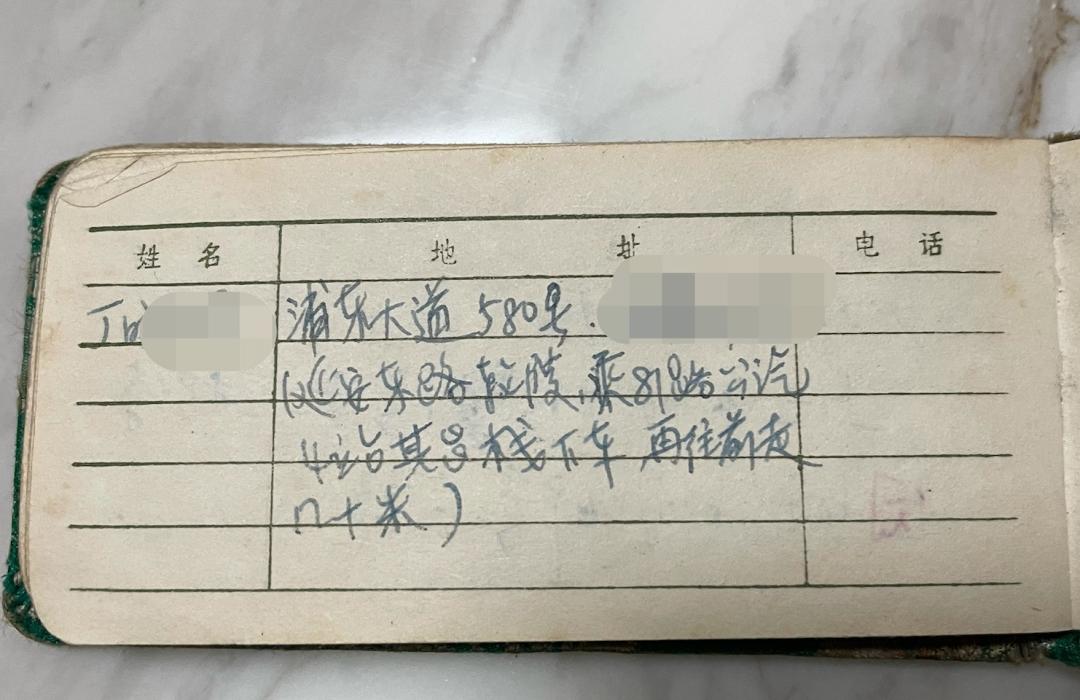 姓 名 地 址 电 话
丁 浦东大道 580号.
(延安东路轮渡,乘818路公汽
4站其昌栈下车 再往前走
几十米)